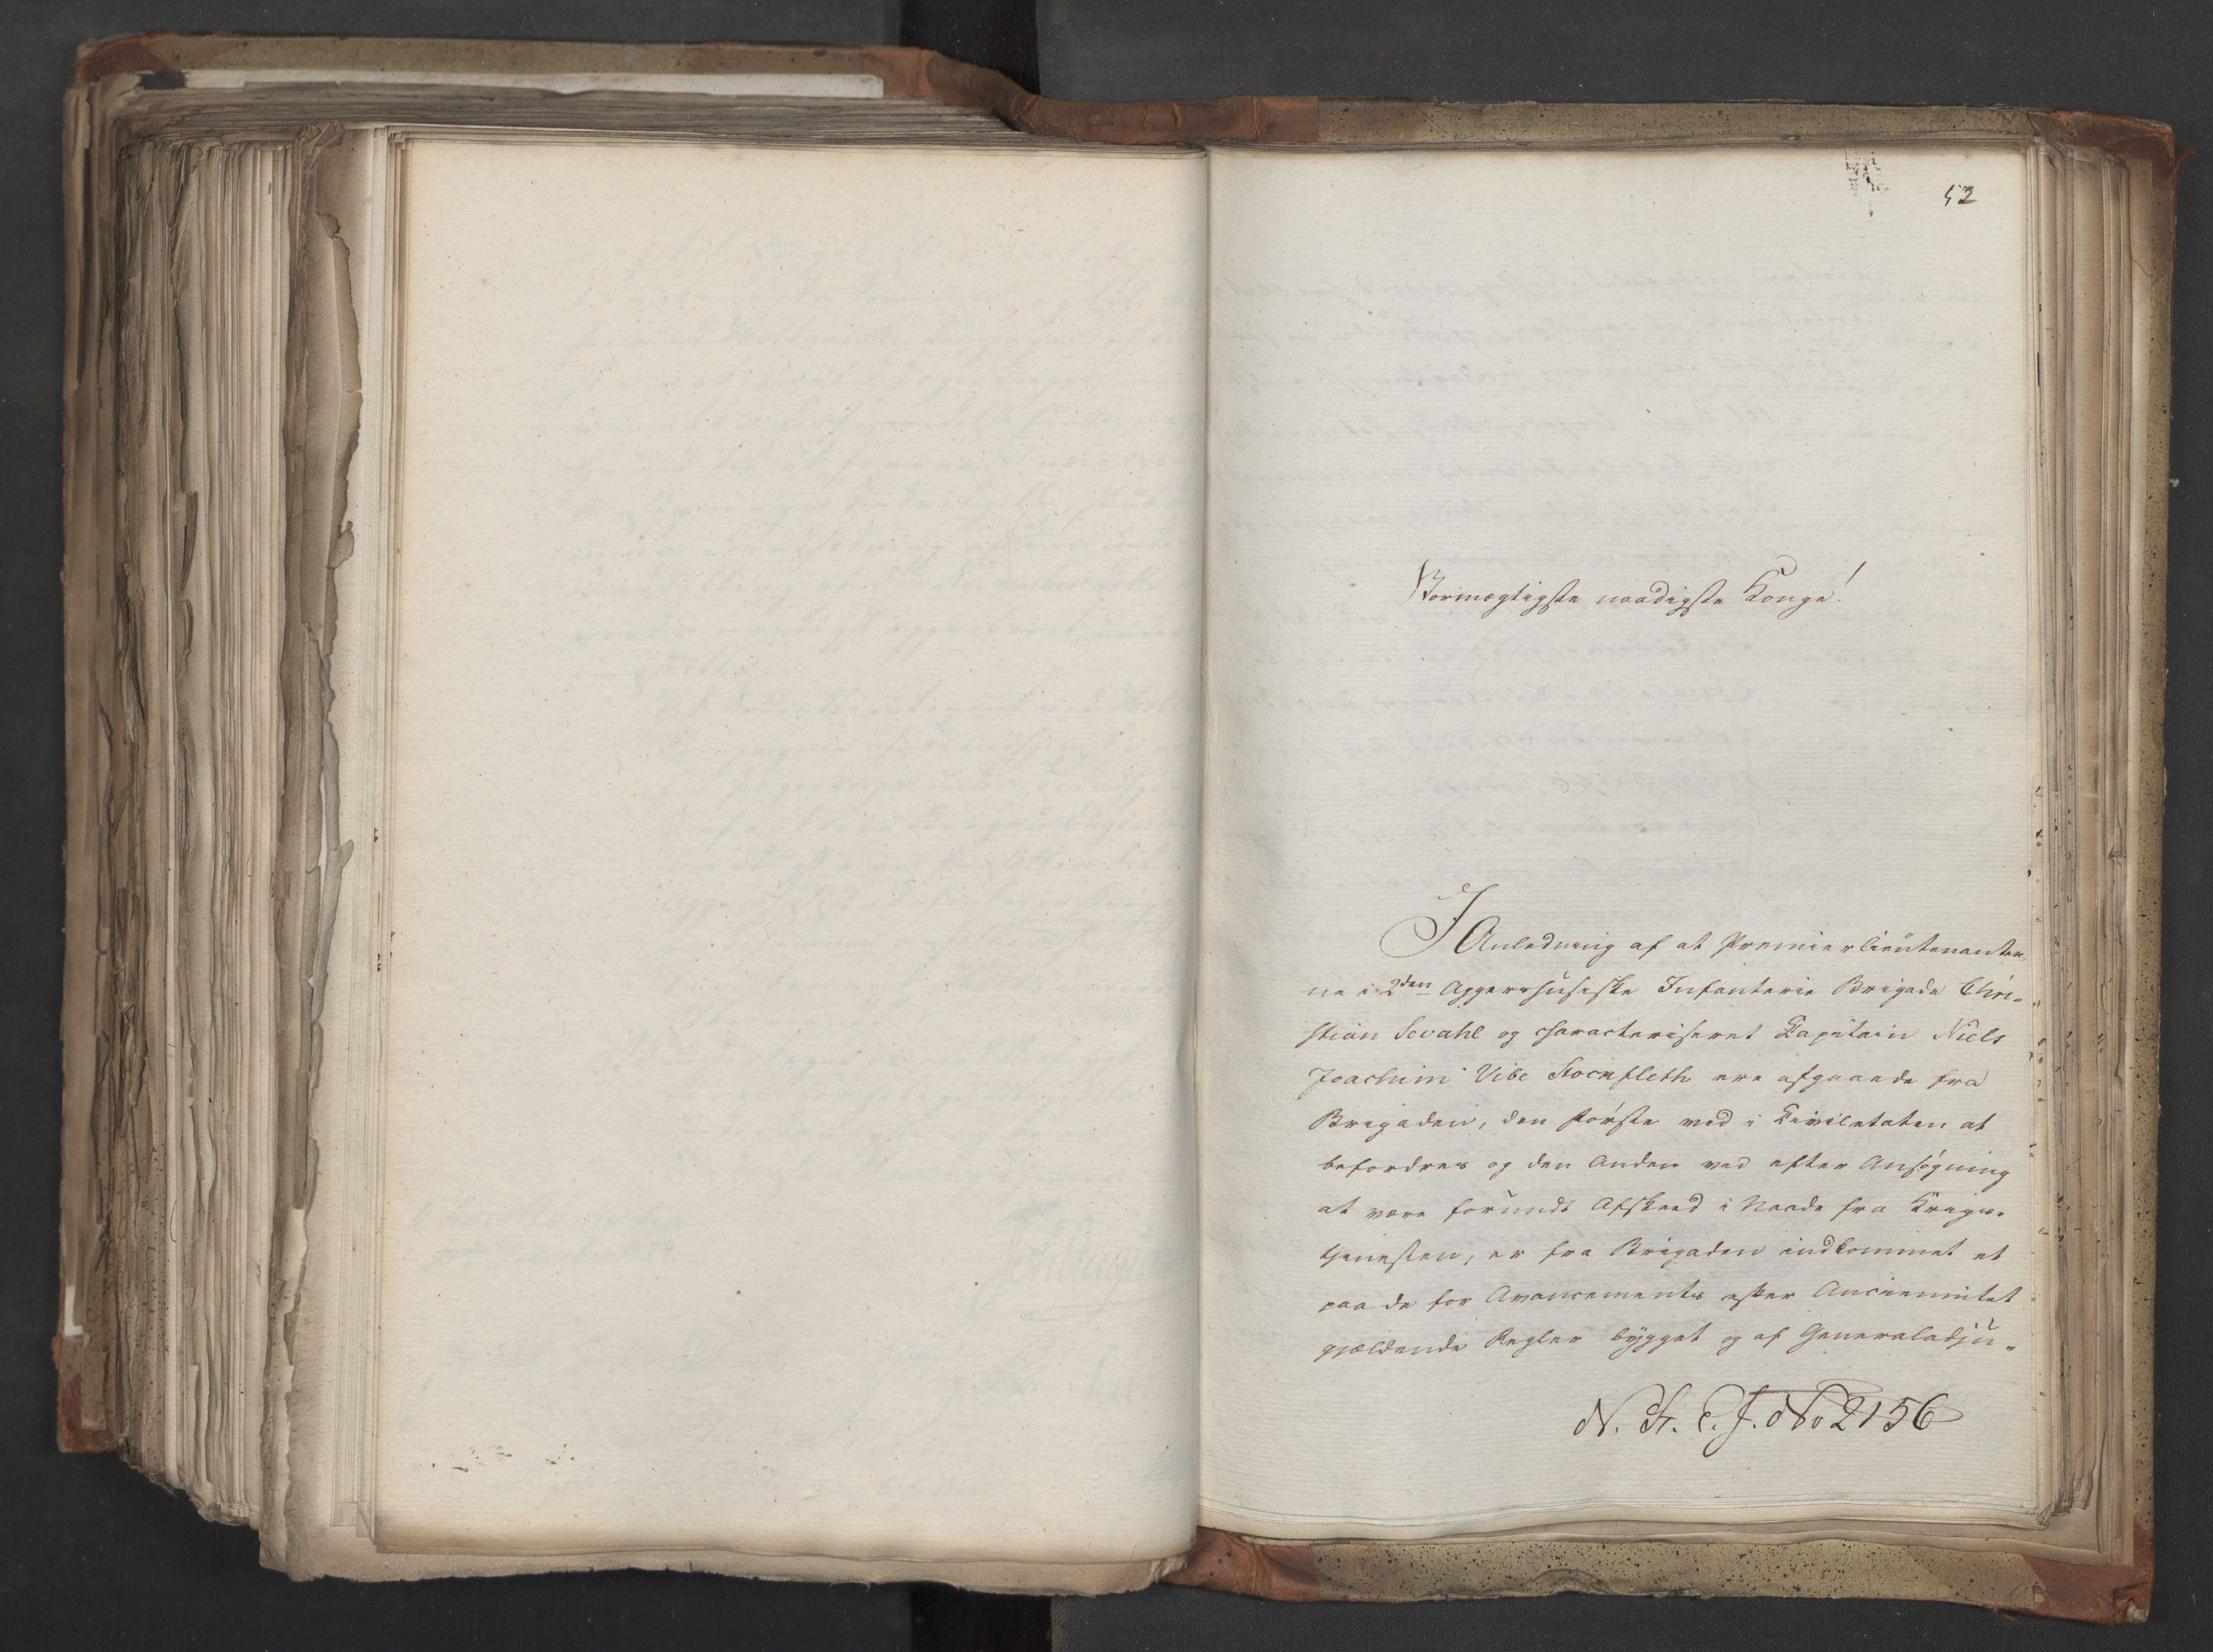 52
Stormægtigste naadigste Konge!
I Anledning af at Premierlieutenanter-
ne i 2den Aggershusiske Infanterie Brigade Chri-
stian Sevahl og characteriseret Capitain Niels
Joachim Vibe Stockfleth ere afgaaede fra
Brigaden, den første ved i Civiletaten at
befordres og den Anden ved efter Ansøgning
at være forundt Afskeed i Naade fra Krigs-
tjenesten, er fra Brigaden indkommet et
paa de for Avancements efter Anciennitet
gjældende Regler bygget og af Generaladju-
N. St. C. J. No 2156